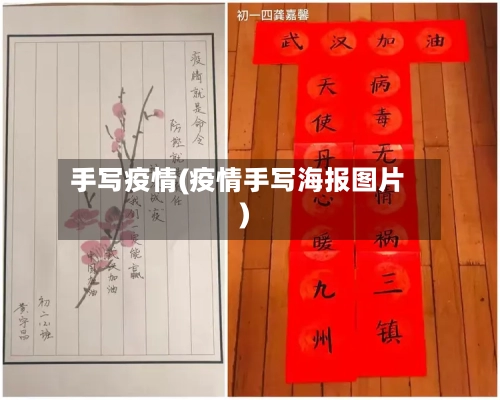 初一四龚嘉馨
武汉加油
病毒无情祸三镇
天使丹心暖九州
疫情就是命令
防控就
任
我们一定能赢
武汉加油
中国加油
初二(2)班
手写疫情(疫情手写海报图片
)